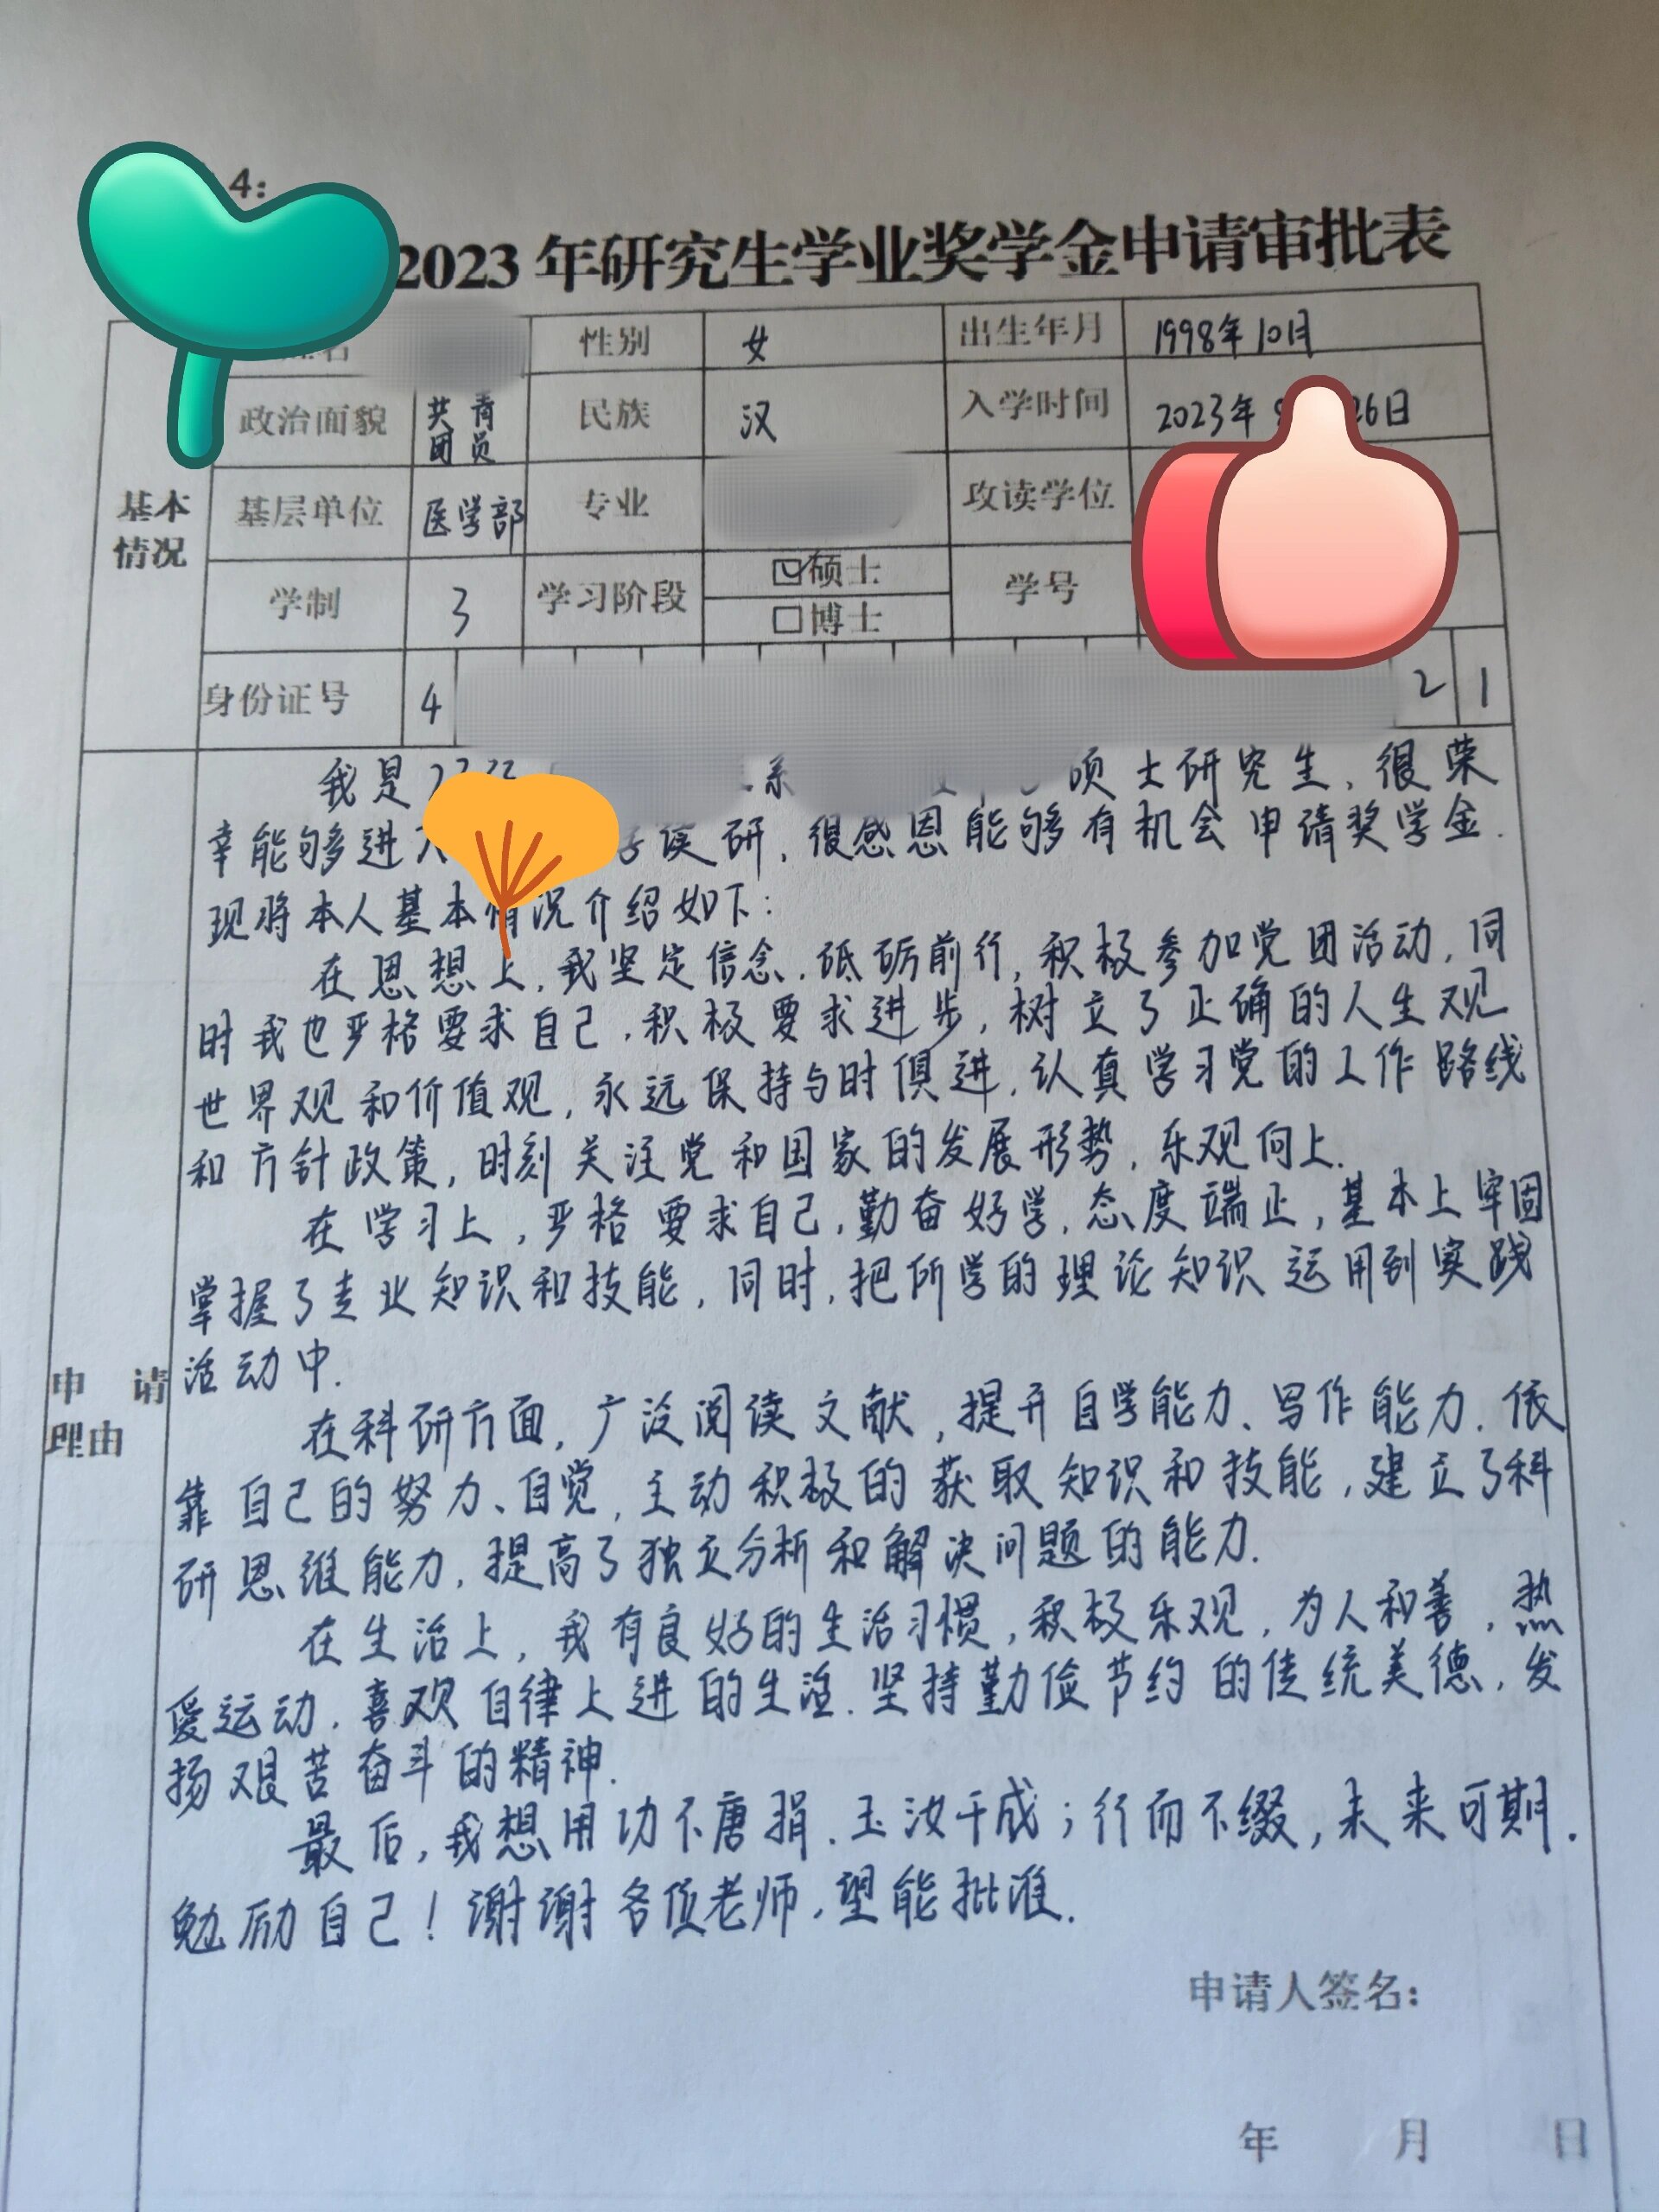 4:
2023年研究生学业奖学金申请审批表
性别 女 出生年月 1998年10月
政治面貌 共青团员 民族 汉 入学时间 2023年 26日
基本情况 基层单位 医学部 专业 攻读学位
学制 3 学习阶段 ☑硕士 学号
☐博士
身份证号 4 2 1
我是 系 硕士研究生,很荣
幸能够进 读研,很感恩能够有机会申请奖学金.
现将本人基本情况介绍如下:
在思想上,我坚定信念.砥砺前行,积极参加党团活动,同
时我也严格要求自己,积极要求进步,树立了正确的人生观
世界观和价值观,永远保持与时俱进,认真学习党的工作路线
和方针政策,时刻关注党和国家的发展形势,乐观向上.
在学习上,严格要求自己,勤奋好学,态度端正,基本上牢固
掌握了专业知识和技能,同时,把所学的理论知识运用到实践
活动中.
申请理由
在科研方面,广泛阅读文献,提升自学能力、写作能力.依
靠自己的努力、自觉,主动积极的获取知识和技能,建立了科
研思维能力,提高了独立分析和解决问题的能力.
在生活上,我有良好的生活习惯,积极乐观,为人和善,热
爱运动.喜欢自律上进的生活.坚持勤俭节约的传统美德,发
扬艰苦奋斗的精神.
最后,我想用功不唐捐.玉汝于成;行而不缀,未来可期.
勉励自己!谢谢各位老师,望能批准.
申请人签名:
年 月 日